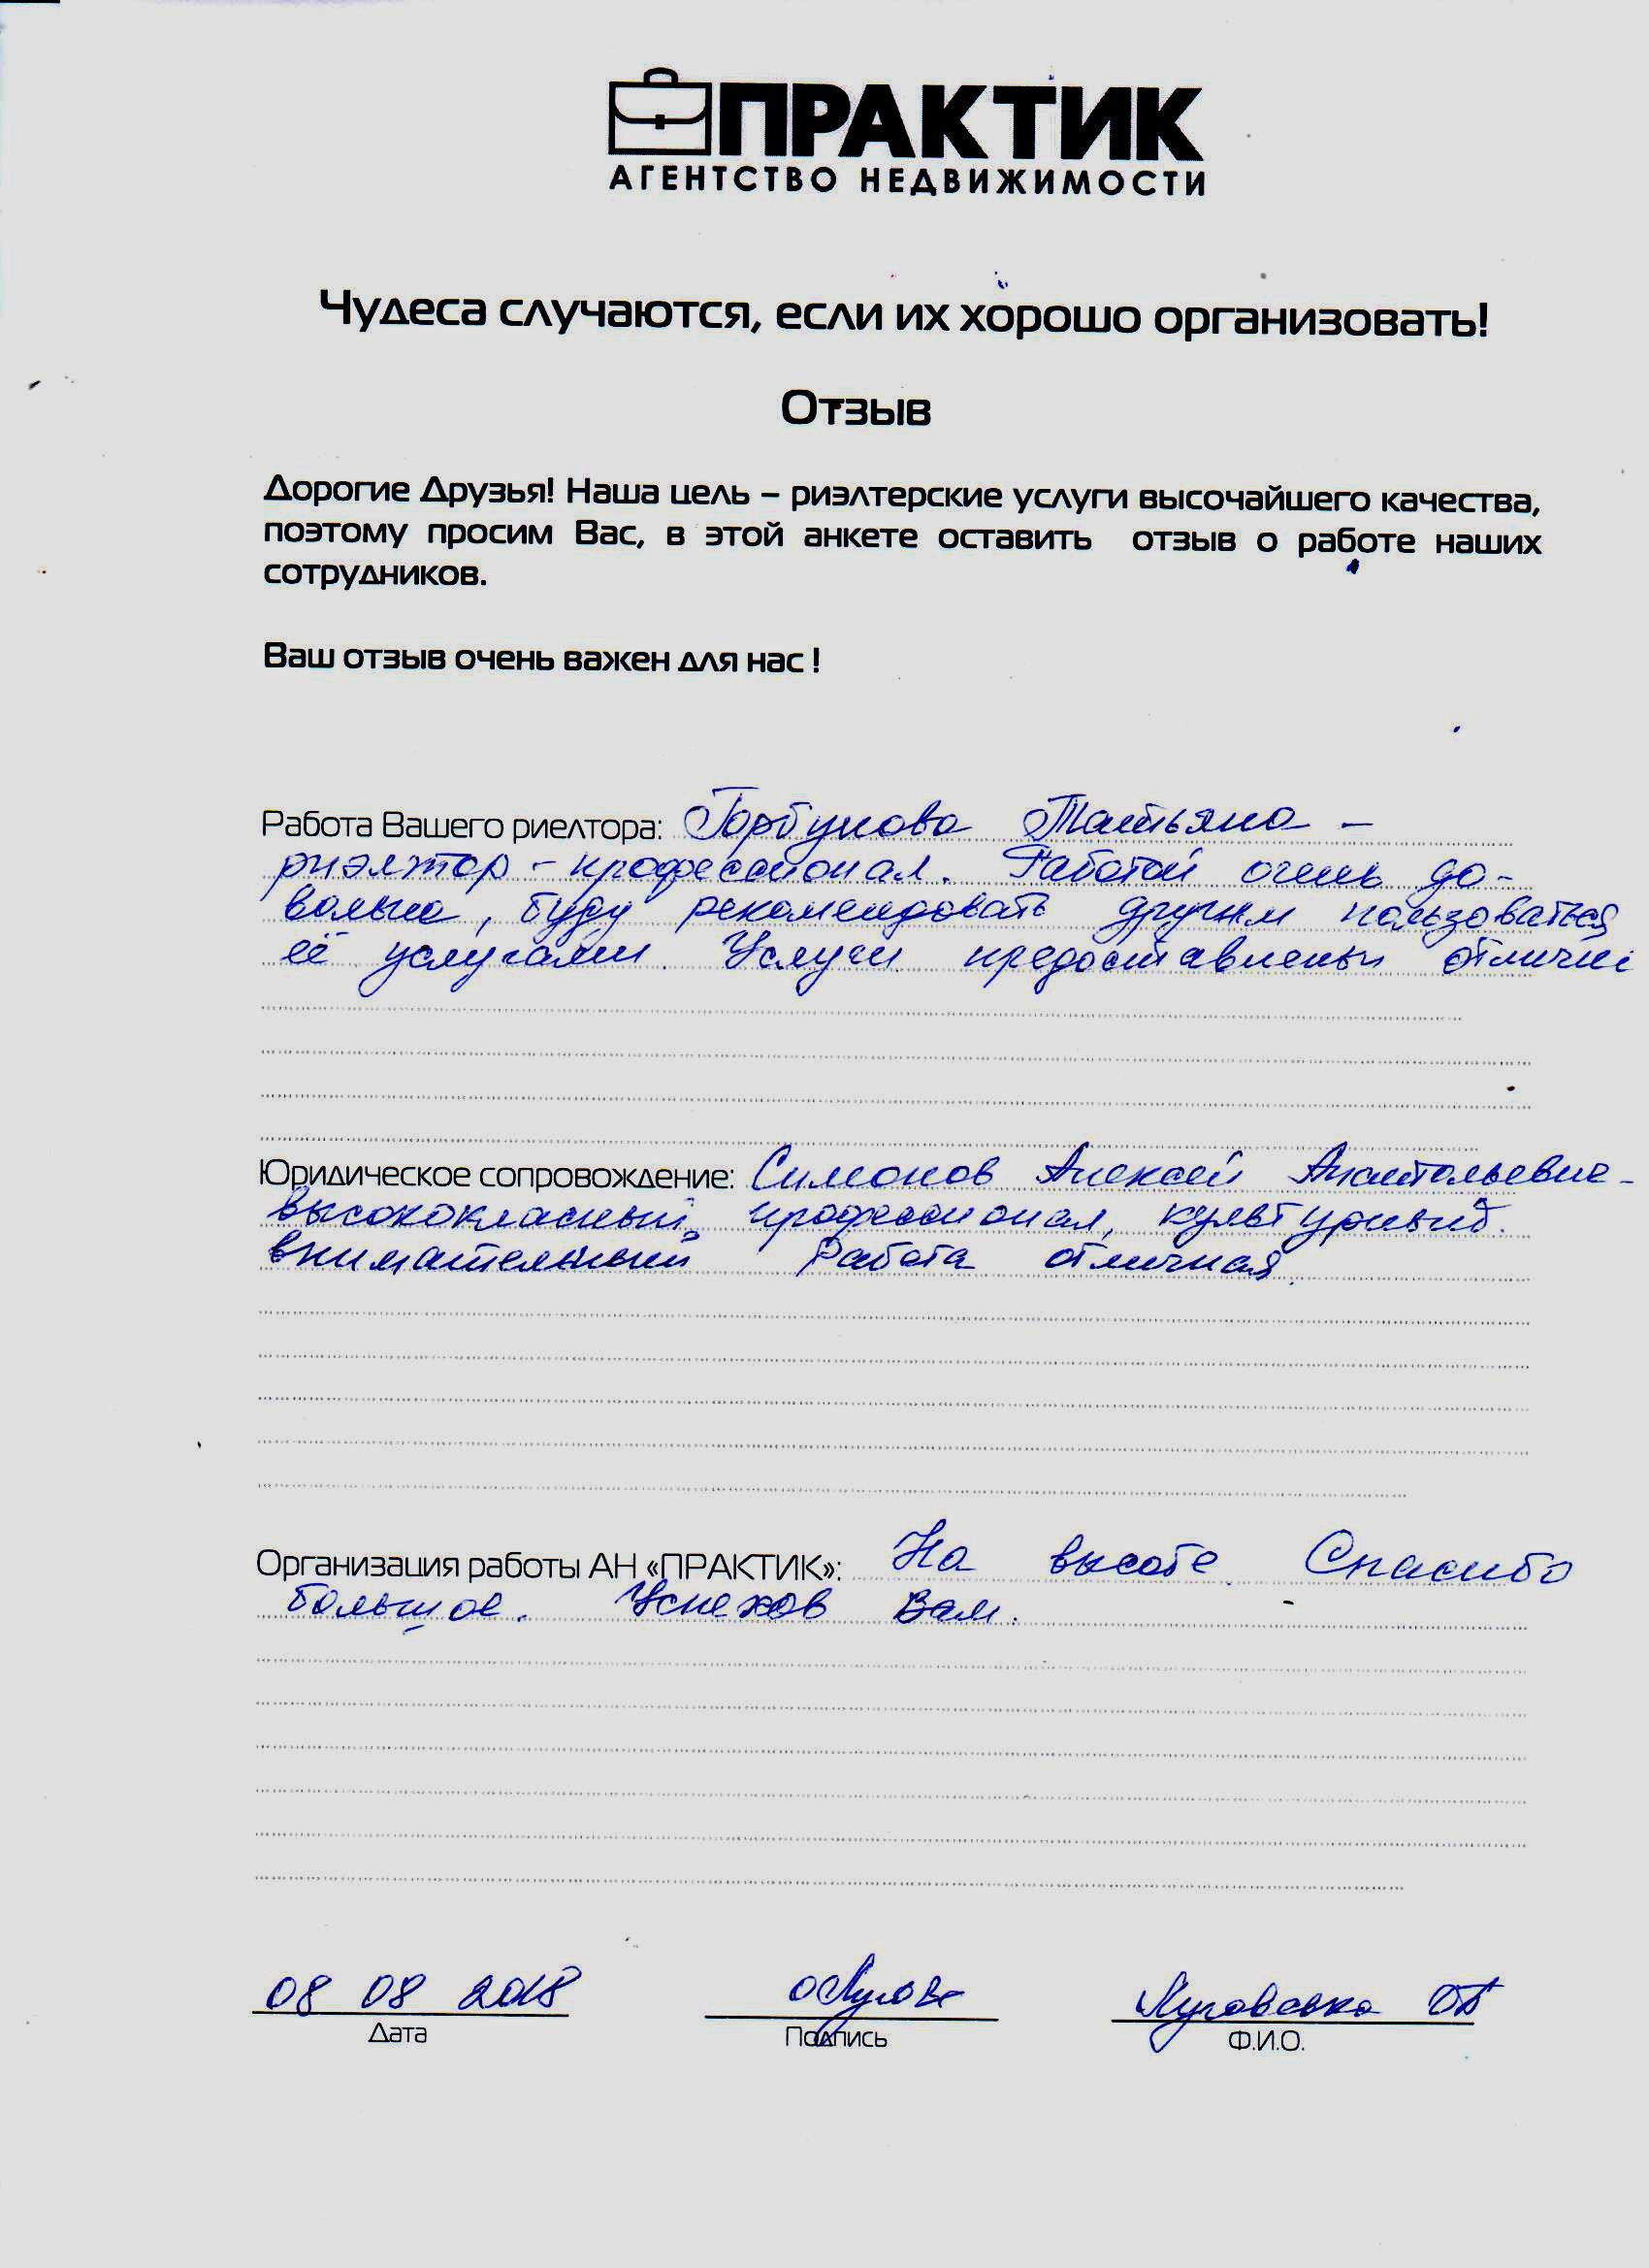 ПРАКТИК
АГЕНТСТВО НЕДВИЖИМОСТИ
Чудеса случаются, если их хорошо организовать!
Отзыв
Дорогие Друзья! Наша цель – риэлтерские услуги высочайшего качества,
поэтому просим Вас, в этой анкете оставить отзыв о работе наших
сотрудников.
Ваш отзыв очень важен для нас !
Работа Вашего риелтора: Горбунова Татьяна –
риэлтор - профессионал. Работой очень до-
вольна, буду рекомендовать другим пользоваться
её услугами. Услуги предоставлены
Юридическое сопровождение: Симонов Алексей Анатольевич -
высококласный профессионал, культурный.
внимательный Работа отличная.
Организация работы АН «ПРАКТИК»: На высоте. Спасибо
большое. Успехов Вам.
08 08 2018
Дата
Подпись
Ф.И.О.